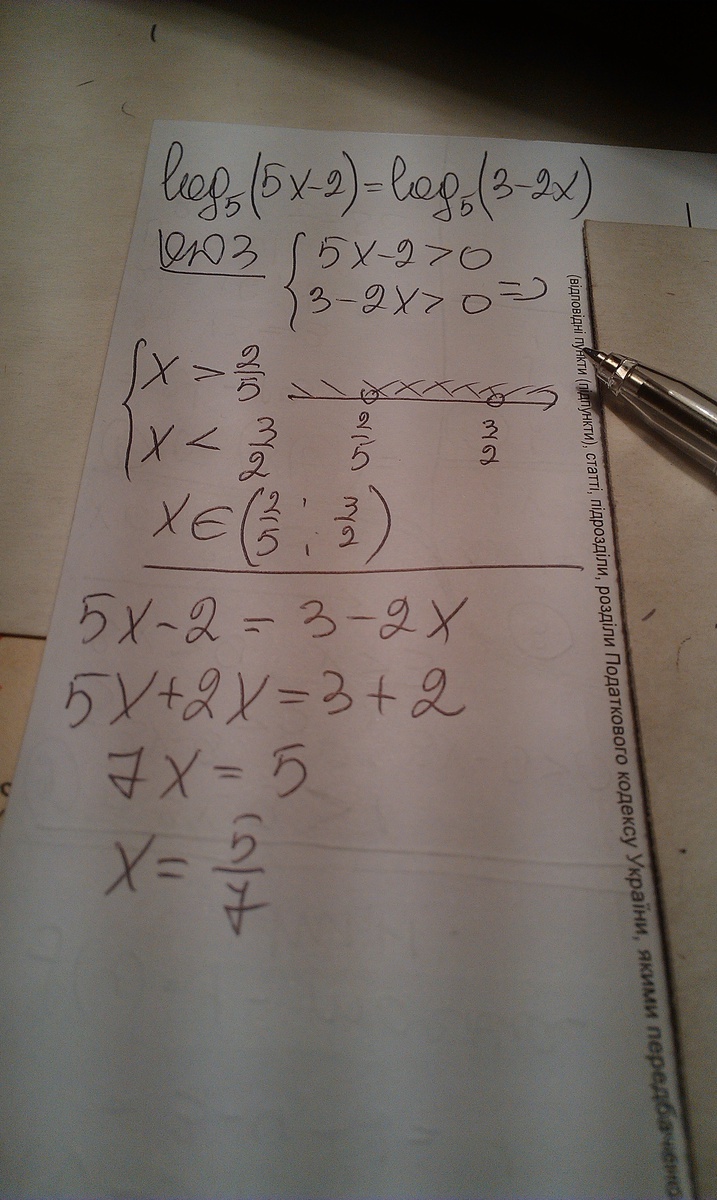 log₅(5x-2)=log₅(3-2x)
ОДЗ { 5x-2>0
3-2x>0 =>
{ x > 2/5
x < 3/2
2/5 3/2
x∈(2/5 ; 3/2)
5x-2 = 3-2x
5x+2x=3+2
7x = 5
x = 5/7
(відповідні пункти (підпункти), статті, підрозділи, розділи Податкового кодексу України, якими передбачено